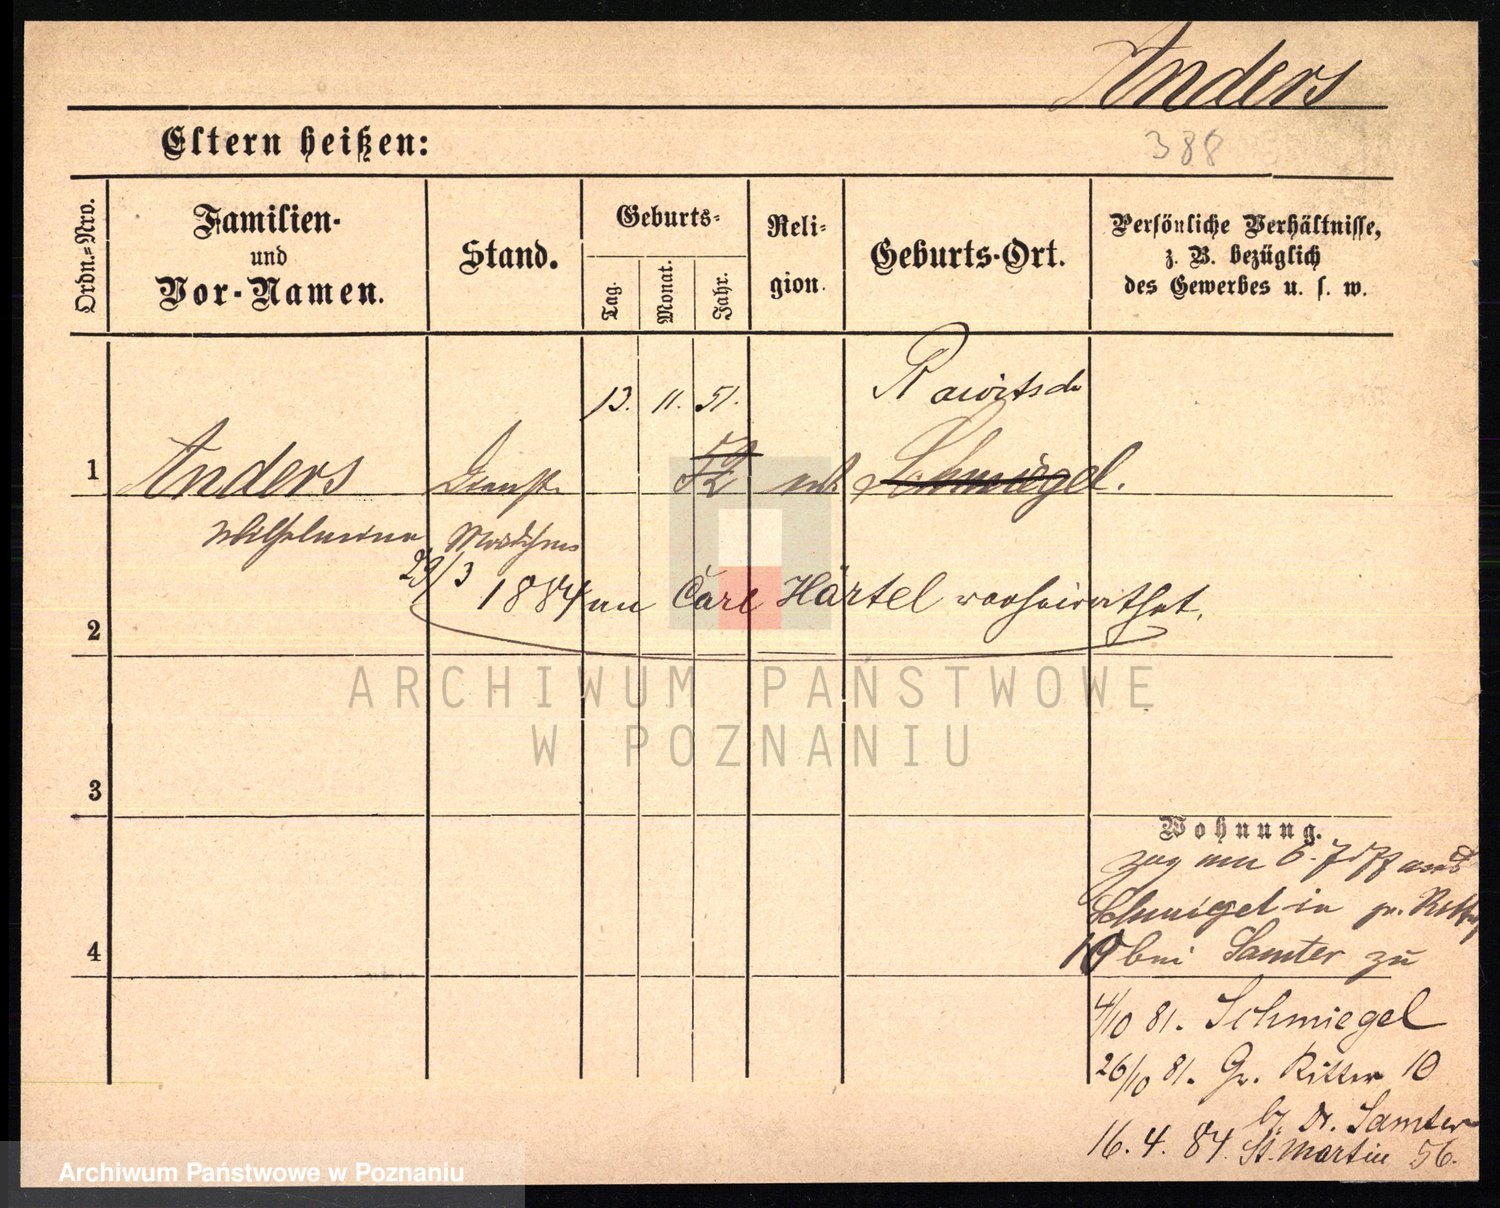 Anders
Eltern heißen:
388
Ordn.=Nro.
Familien-
und
Vor-Namen.
Stand.
Geburts=
Tag.
Monat.
Jahr.
Reli=
gion.
Geburts-Ort.
Persönliche Verhältnisse,
z. B. bezüglich
des Gewerbes u. s. w.
13. 11. 51. Rawitsch
1 Anders Dienst 52 Schmiegel.
Wilhelmine Mädchen
29/3 1884 an Carl Härtel verheirathet.
2
ARCHIWUM PAŃSTWOWE
W POZNANIU
3
Wohnung.
zog am 6. 7 77 aus
Schmiegel in gr. Ritter
10 bei Samter zu
4
4/10 81. Schmiegel
26/10 81. Gr. Ritter 10
b. Dr. Samter
16. 4. 84. St. Martin 56.
Archiwum Państwowe w Poznaniu